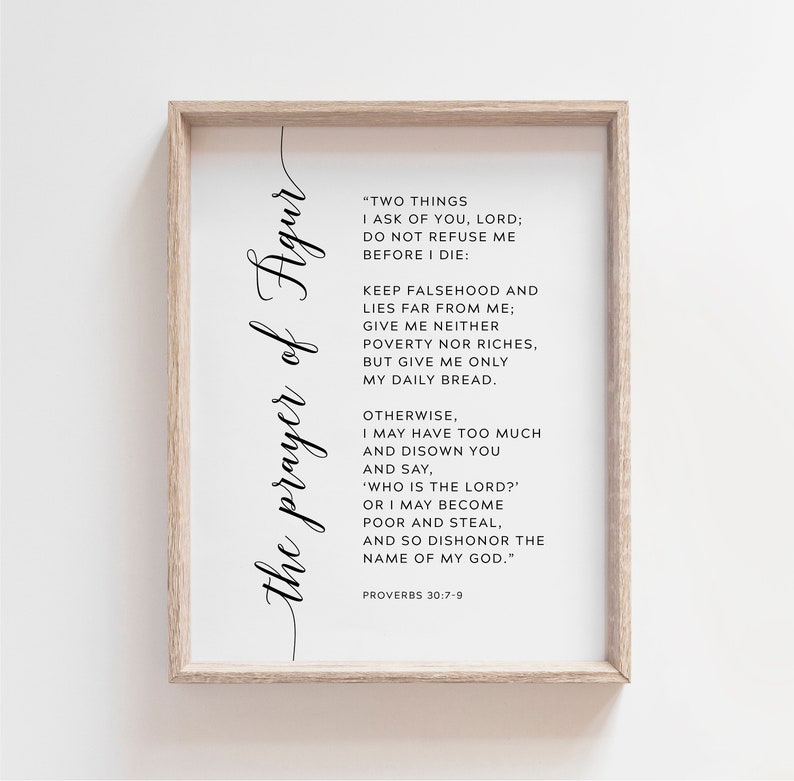 the prayer of Agur
“TWO THINGS
I ASK OF YOU, LORD;
DO NOT REFUSE ME
BEFORE I DIE:
KEEP FALSEHOOD AND
LIES FAR FROM ME;
GIVE ME NEITHER
POVERTY NOR RICHES,
BUT GIVE ME ONLY
MY DAILY BREAD.
OTHERWISE,
I MAY HAVE TOO MUCH
AND DISOWN YOU
AND SAY,
‘WHO IS THE LORD?’
OR I MAY BECOME
POOR AND STEAL,
AND SO DISHONOR THE
NAME OF MY GOD.”
PROVERBS 30:7-9